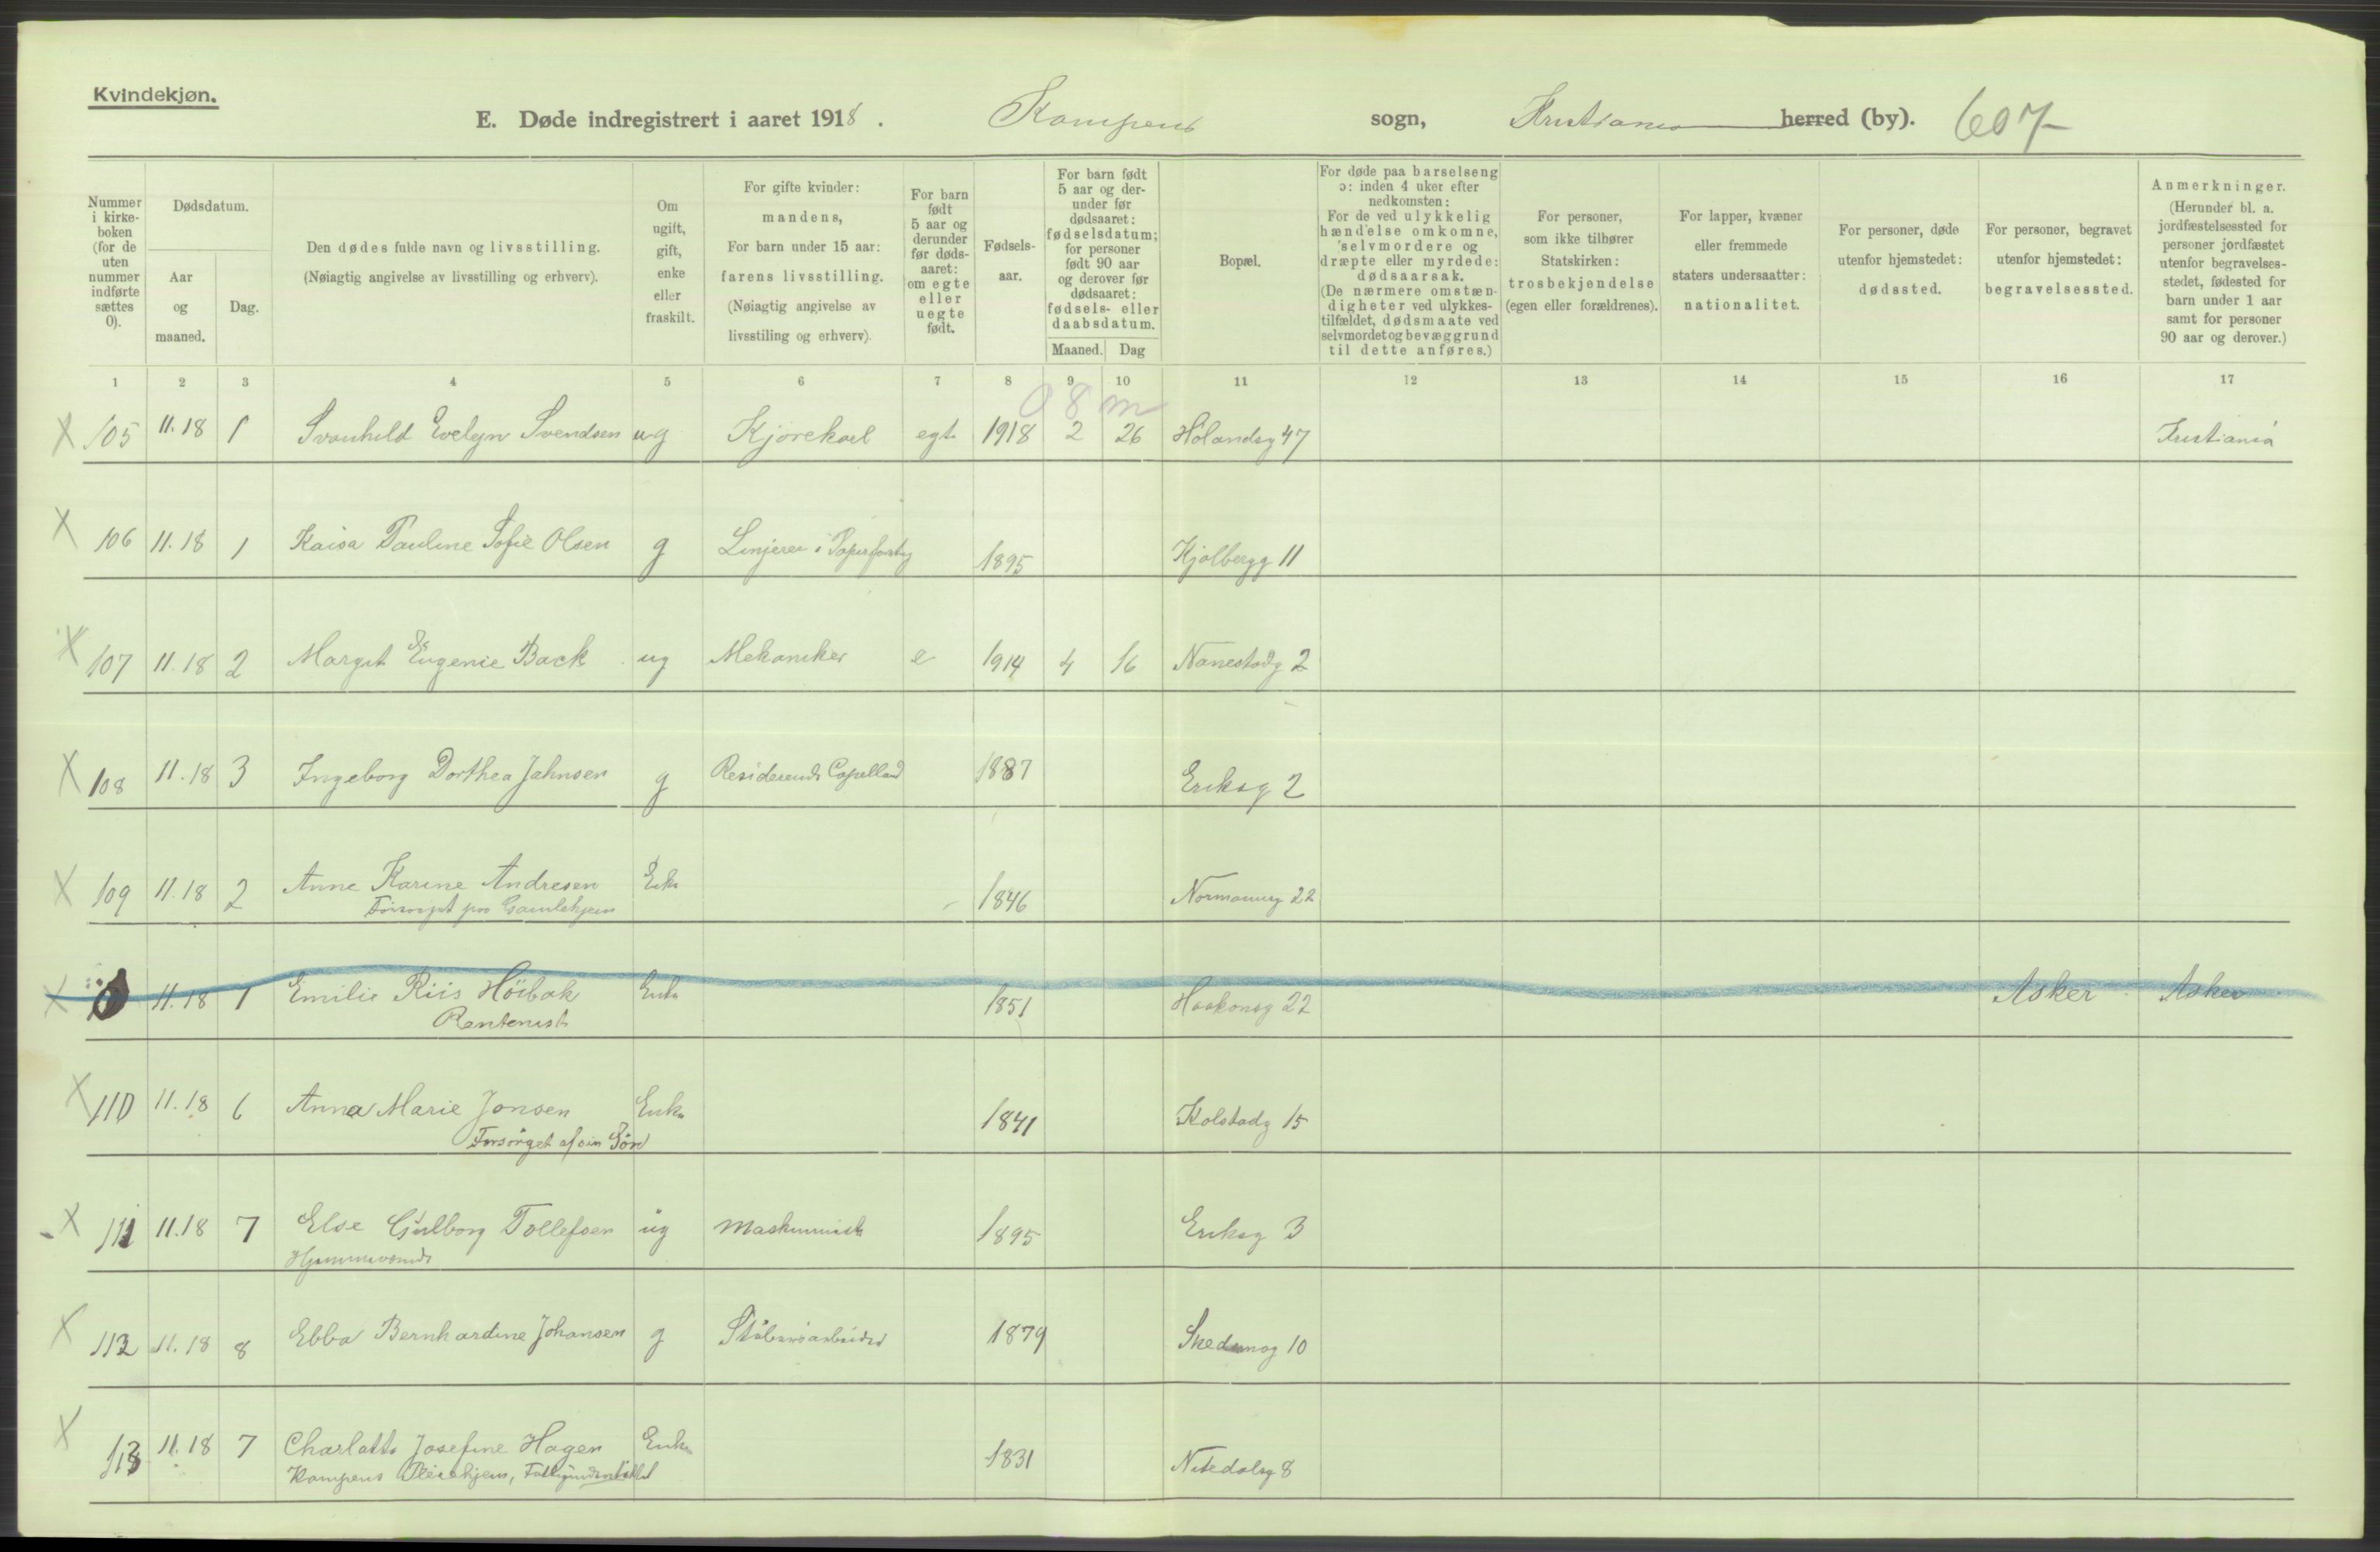 Kvindekjøn.
E. Døde indregistrert i aaret 1918. Kampens sogn, Kristiania herred (by). 607
Nummer i kirkeboken (for de uten nummer indførte sættes 0).
Dødsdatum.
Aar og maaned.
Dag.
Den dødes fulde navn og livsstilling.
(Nøiagtig angivelse av livsstilling og erhverv).
Om ugift, gift, enke eller fraskilt.
For gifte kvinder: mandens,
For barn under 15 aar: farens livsstilling.
(Nøiagtig angivelse av livsstiling og erhverv).
For barn født 5 aar og derunder før dødsaaret: om egte eller uegte født.
Fødselsaar.
For barn født 5 aar og derunder før dødsaaret: fødselsdatum; for personer født 90 aar og derover før dødsaaret: fødsels- eller daabsdatum.
Maaned. Dag
Bopæl.
For døde paa barselseng ɔ: inden 4 uker efter nedkomsten:
For de ved ulykkelig hændelse omkomne, selvmordere og dræpte eller myrdede: dødsaarsak.
(De nærmere omstændigheter ved ulykkestilfældet, dødsmaate ved selvmordet og bevæggrund til dette anføres.)
For personer, som ikke tilhører Statskirken: trosbekjendelse (egen eller forældrenes).
For lapper, kvæner eller fremmede staters undersaatter: nationalitet.
For personer, døde utenfor hjemstedet: dødssted.
For personer, begravet utenfor hjemstedet: begravelsessted.
Anmerkninger.
(Herunder bl. a. jordfæstelsessted for personer jordfæstet utenfor begravelsesstedet, fødested for barn under 1 aar samt for personer 90 aar og derover.)
1 2 3 4 5 6 7 8 9 10 11 12 13 14 15 16 17
0 8 m
X 105 11.18 1 Svanhild Evelyn Svendsen ug Kjørekarl egt 1918 2 26 Hölandsg 47 Kristiania
X 106 11.18 1 Kaisa Pauline Sofie Olsen g Linjerer i 1895 Kjølbergg 11
X 107 11.18 2 Margit Eugenie Back ug Mekaniker e 1914 4 16 Nanestadg 2
X 108 11.18 3 Ingeborg Dorthea Jahnsen g Residerende Capelland 1887 Eriksg 2
X 109 11.18 2 Anne Karine Andresen Enke 1846 Normannsg 22
Forsørget paa Gamlehjem
X 0 11.18 1 Emilie Riis Höibak Enke 1851 Haakonsg 22 Asker Asker
Rentenist
X 110 11.18 6 Anna Marie Jansen Enke 1841 Kolstadg 15
Forsörget af sin Sön
X 111 11.18 7 Else Gulborg Tollefsen ug Maskinist 1895 Eriksg 3
Hjemmeværende
X 112 11.18 8 Ebba Bernhardine Johansen g Støberiarbeider 1879 Skedsmog 10
X 113 11.18 7 Charlotte Josefine Hagen Enke 1831 Nitedalsg 8
Kampens Pleiehjem,